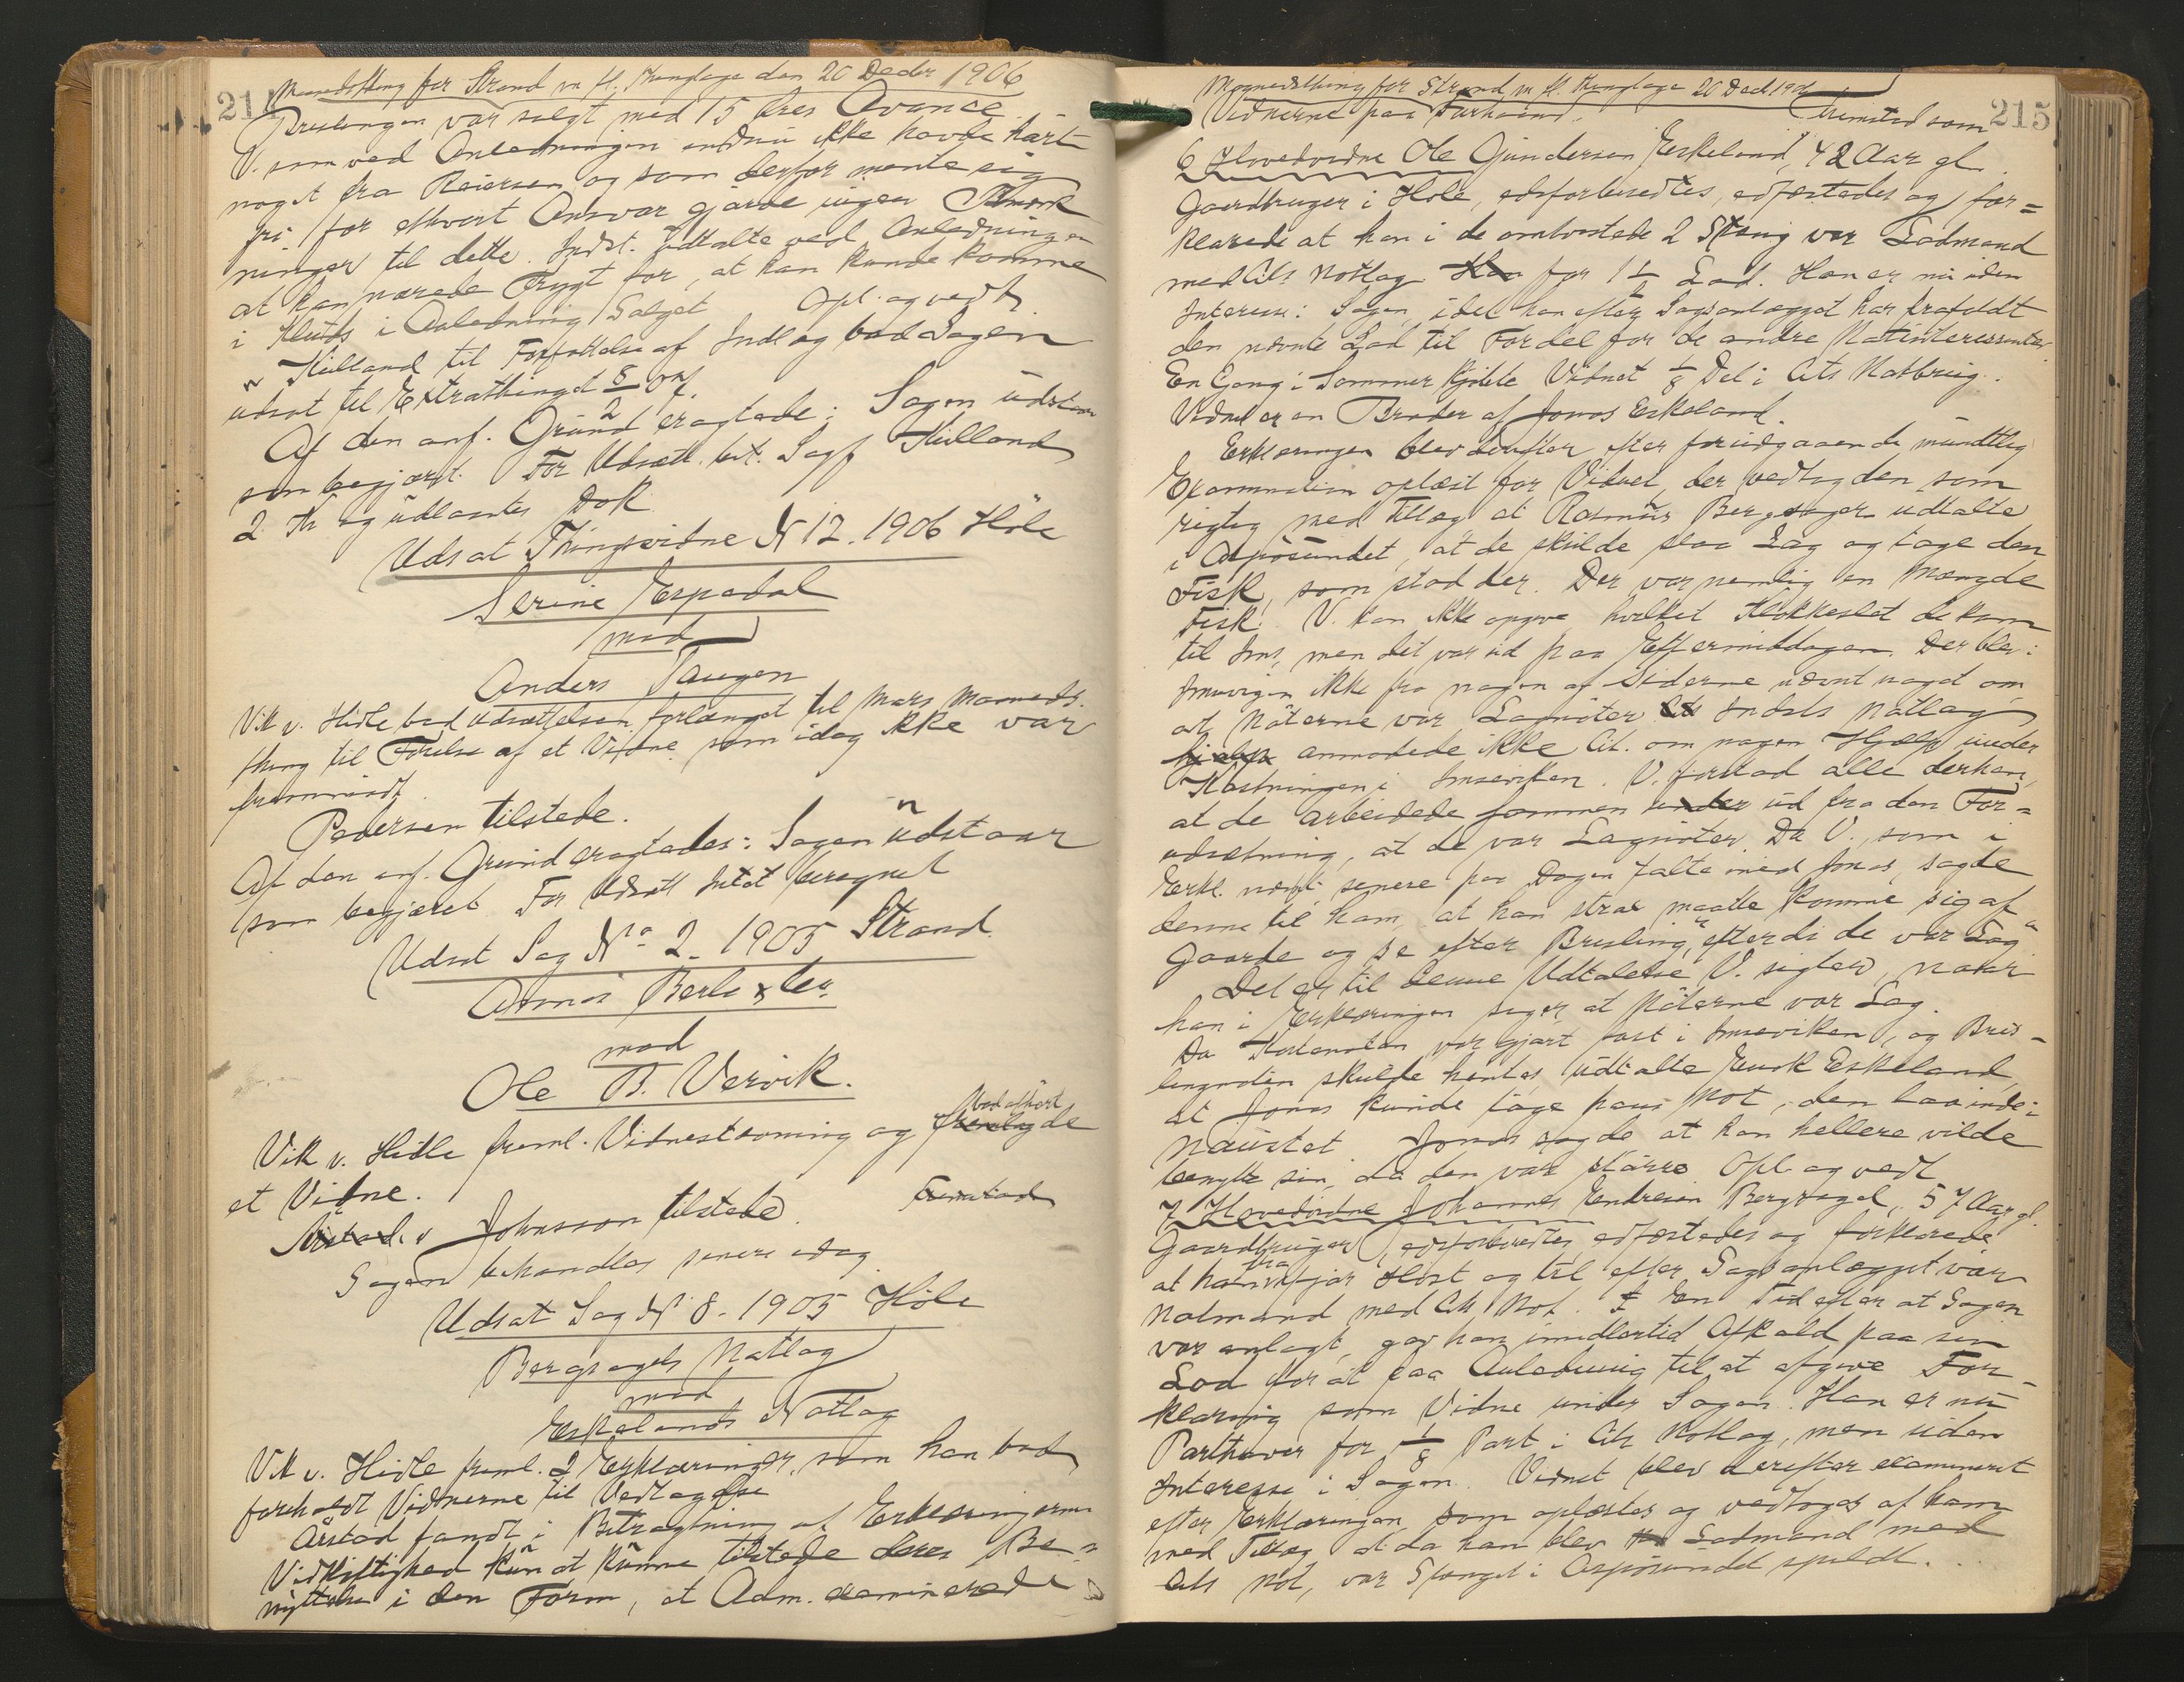 214
Maanedsthing for Strand m. fl. Thinglage den 20 Decbr 1906
Brislingen var solgt med 15 Øres Avance
V. som ved Anledningen endnu ikke havde hørt
noget fra Reiersen og som derfor mente sig
fri for ethvert Ansvar gjorde ingen Anmærk
ninger til dette. Indst. udtalte ved Anledningen
at han nærede Frygt for, at han kunde komme
i Kluds i Anledning Salget Opl. og vedt.
Kielland til Forfattelse af Indl og bad Sagen
udsat til Extrathinget
Af den anf. Grund eragtede: Sagen udstaar
som begjært. For Udsætt. bet. Sagf. Kielland
2 Kr og udlaantes Dok
Udsat Thingsvidne N 12. 1906 Høle
Serine Espedal
mod
Anders Taugen
Vik v. Hidle bad udsættelsen forlænget til Mars Maaneds
thing til Førelse af et Vidne som idag ikke var
fremmødt.
Pedersen tilstede.
Af den anf. Grund eragtedes: Sagen udstaar
som begjæret For Udsætt Intet beregnet
Udsat Sag No 2. 1905 Strand
mod
Ole B. Vervik.
Vik v. Hidle freml. Vidnestævning og bad afhørt
et Vidne.
Johnsson tilstede. Fremstod
Sagen behandles senere idag
Udsat Sag N 8 - 1905 Høle
Bergsagels Notlag
mod
Eskelands Notlag
Vik v. Hidle freml. 2 Erklæringer, som han bad
foreholdt Vidnerne til Vedtagelse
Årstad fandt i Betragtning af Erklæringernes
Vidløftighed kun at kunne tilstede deres Be=
nyttelse i den Form, at Adm. examinerede
215
Maanedsthing for Strand m. fl. Thinglage 20 Decb 1906
Vidnerne paa Forhaand. Fremstod som
6 Hovedvidne Ole Gundersen Eskeland, 42 Aar gl.
Gaardbruger i Høle, edsforberedtes, edfæstedes og for=
klarede at han i de omtvistede 2 Stæng var Lodmand
med Cits Notlag for 1 Lod. Han er nu uden
Interesse i Sagen, idet han efter Sagsanlægget har frafaldt
den nævnte Lod til Fordel for de andre Notinteressenter.
En Gang i Sommer kjøbte Vidnet 1/8 Del i Cits Notbrug.
Vidnet er en Broder af Jonas Eskeland.
Erklæringen blev derefter efter forudgaaende mundtlig
Examination oplæst for Vidnet, der vedtog den som
rigtig med Tillæg at Rasmus Bergsagel udtalte
i Adpøsundet, at de skulde slaa Lag og tage den
Fisk, som stod der. Der var nemlig en Mængde
Fisk. V. kan ikke opgive hvilket Klokkeslet de kom
til Ims, men det var ud paa Eftermiddagen. Der blev i
Imsvigen ikke fra nogen af Siderne nævnt noget om
at Nøterne var Lagnøter Indsts Notlag
anmodede ikke Cit. om nogen Hjælp under
Kastningen i Imsviken. V. forstod alle derhen,
at de arbeidede sammen ud fra den For=
udsætning, at de var Lagnøter. Da V., som i
Erkl. nævnt, senere paa Dagen talte med Jonas, sagde
denne til ham, at han strax maatte komme sig af
Gaarde og se efter Brisling, "efterdi de var Lag"
Det er til denne Udtalelse V. sigter, naar
han i Erklæringen siger, at Nøterne var Lag.
Da Kastenoten var gjort fast i Imsviken, og Bris-
lingnoten skulde hentes, udtalte Enok Eskeland
at Jonas kunde tage hans Not, den laa inde i
Naustet. Jonas sagde at han hellere vilde
benytte sin, da den var større Opl. og vedt.
7 Hovedvidne Johannes Endresen Bergsagel, 57 Aar gl.
Gaardbruger, edsforberedtes, edfæstedes og forklarede
at han fra ifjor Høst og til efter Sagsanlægget var
Notmand med Cits Not. En Tid efter at Sagen
var anlagt, gav han imidlertid Afkald paa sin
Lod for at faa Anledning til at afgive For-
klaring som Vidne under Sagen. Han er nu
Parthaver for 1/8 Part i Cits Notlag, men uden
Interesse i Sagen. Vidnet blev derefter examineret
efter Erklæringen som oplæstes og vedtoges af ham
med Tillæg at da han blev Lodmand med
Cits Not, var Stænget i Adpøsundet spildt.